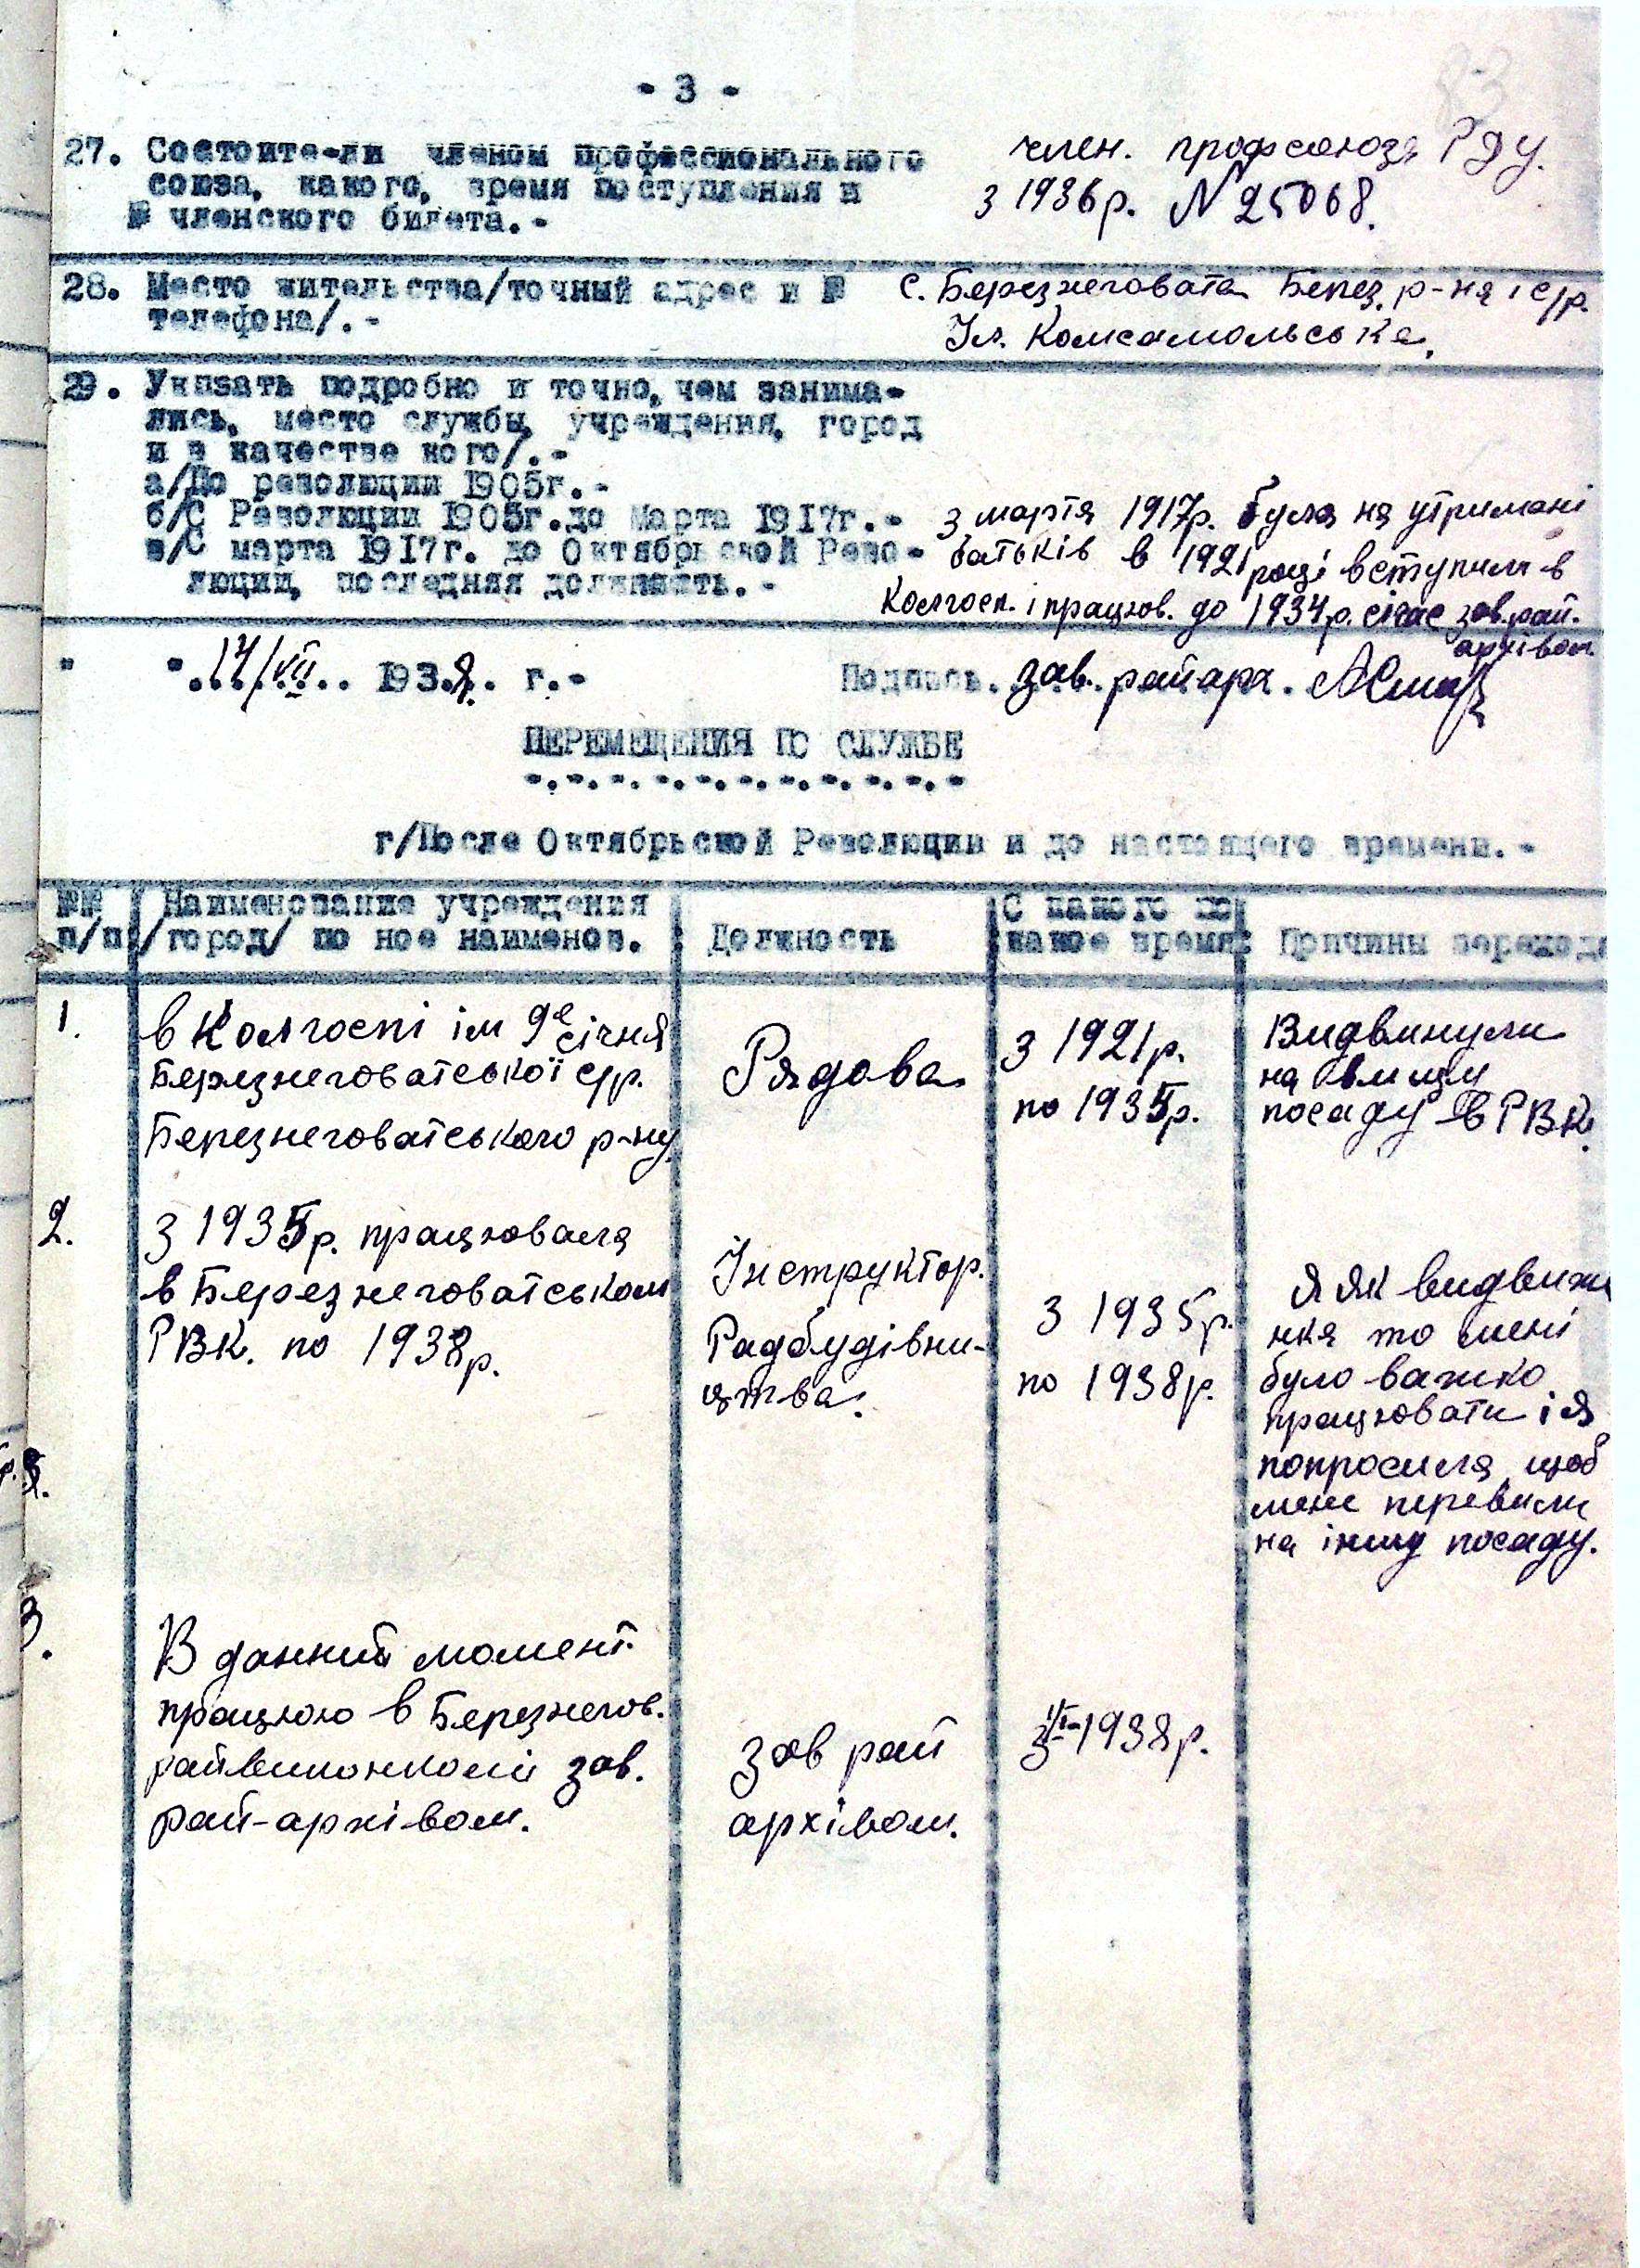 83
- 3 -
27. Состоите-ли членом профессионального
союза, какого, время поступления и
№ членского билета.-
член. профсоюза РДУ.
з 1936р. N 25068.
28. Место жительства/точный адрес и №
телефона/.-
с. Березнеговата Берез. р-на і с/р.
Ул. Комсамольська.
29. Указать подробно и точно, чем занима-
лись, место службы, учреждения, город
и в качестве кого/.-
а/До революции 1905г.-
б/С Революции 1905г. до Марта 1917г.-
в/С марта 1917г. до Октябрьской Рево-
люции, последняя должность.-
з марта 1917р. була на утримані
батьків в 1921 році вступила в
Колгосп. і працюв. до 1934р. січас зав. рай.
архівом
" ".17/VII.. 1938. г.-
Подпись. зав. райарх.
ПЕРЕМЕЩЕНИЯ ПО СЛУЖБЕ
г/После Октябрьской Революции и до настоящего времени.-
№№ п/п
Наименование учреждения
/город/ по ное наименов.
Должность
С какого по
какое время
Причины перехода
1.
в Колгоспі ім 9е січня
Березнеговатської с/р.
Березнеговатського р-ну
Рядова
З 1921р.
по 1935р.
Видвинули
на вищу
посаду в РВК.
2.
З 1935р. працювала
в Березнеговатськом
РВК. по 1938р.
Інструктор.
Радбудівни-
цтва.
З 1935р.
по 1938р.
Я як видвиже
нка то мені
було важко
працювати і я
попросила щоб
мене перевили
на іншу посаду.
3.
В данний момент
працюю в Березнегов.
райвиконкомі зав.
рай-архівом.
зав рай
архівом.
1938р.